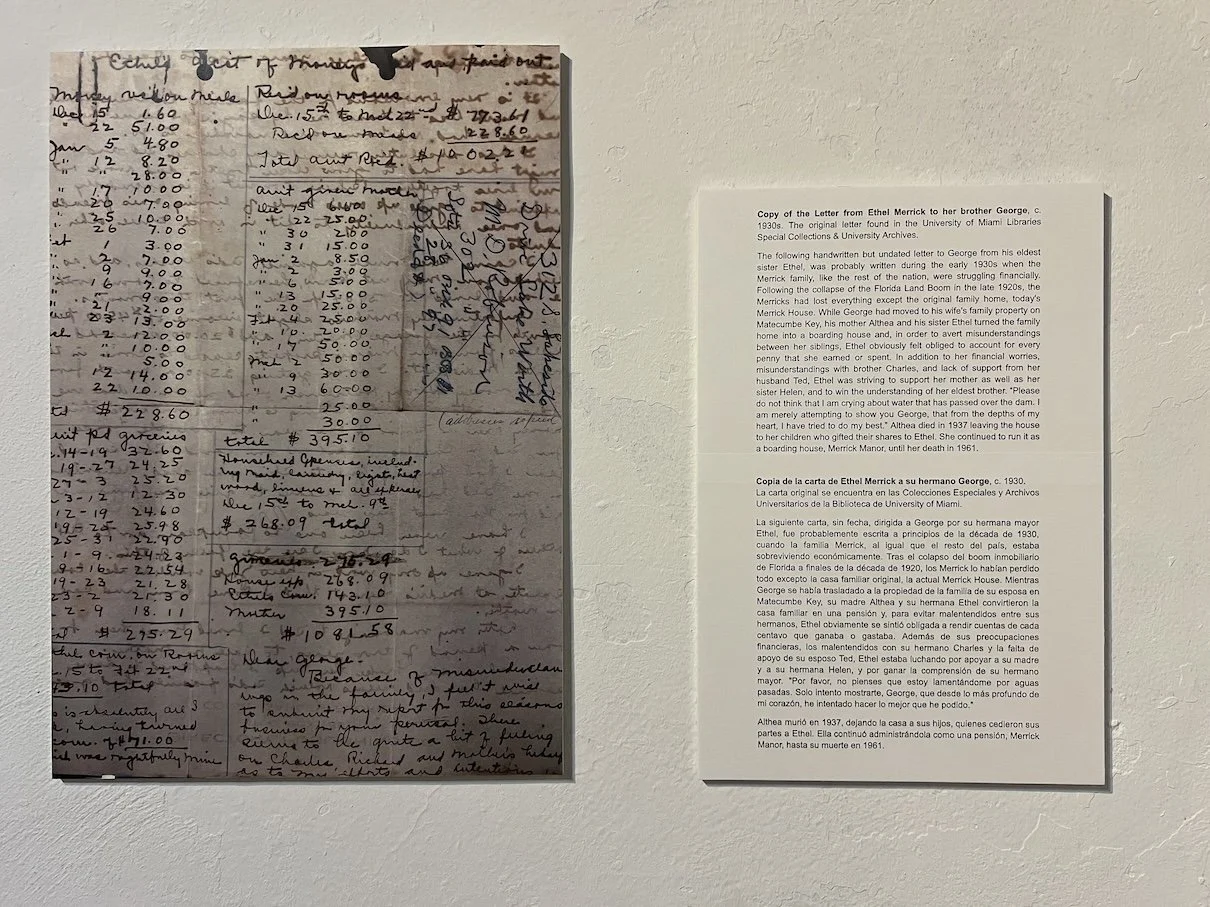 Ethel's acct of Moneys rec'd and paid out
Money rec'd on meals
Dec. 15 1.60
" 22 51.00
Jan 5 4.80
" 12 8.20
" 28.00
" 17 10.00
" 20 7.00
" 25 10.00
" 26 7.00
1 3.00
" 2 7.00
" 9 9.00
" 16 7.00
" 9.00
" 21 2.00
" 23 13.00
2 12.00
" 10.00
" 5.00
12 14.00
22 10.00
$ 228.60
pd groceries
14-19 32.60
19-27 24.25
27-3 25.20
3-12 12.30
12-19 24.60
19-25 25.98
25-31 22.90
1-9 24.23
9-16 22.54
19-23 21.28
23-2 21.30
2-9 18.11
$ 275.29
com. on Rooms
15 to Feb 22nd
total
is absolutely
having turned
of $71.00
was rightfully mine
Rec'd on rooms
Dec. 15th to Mch 22nd $ 773.61
Rec'd on meals 228.60
Total amt Rec'd. $ 1002.21
amt given Mother
Dec 15 6.60
" 22 25.00
" 30 2.00
" 31 15.00
Jan 2 8.50
" 2 3.00
" 6 5.00
" 13 15.00
" 20 25.00
Feb 4 25.00
" 10 20.00
" 17 50.00
Mch 2 50.00
" 9 30.00
" 13 60.00
" 25.00
30.00
total $ 395.10
Household Expenses, includ-
ing maid, laundry, lights, heat
wood, linens & all expenses
Dec 15th to Mch. 9th
$ 268.09 total
Groceries 275.29
House exp 268.09
Ethel's com. 143.10
Mother 395.10
$ 1081.58
Dear George.
Because of misunderstan
ings in the family, I feel it wise
to submit my report for this seasons
business for your perusal. There
seems to be quite a bit of feeling
on Charles, Richard and Mother's
as to my efforts and intentions
(addresses copied
Copy of the Letter from Ethel Merrick to her brother George, c.
1930s. The original letter found in the University of Miami Libraries
Special Collections & University Archives.
The following handwritten but undated letter to George from his eldest
sister Ethel, was probably written during the early 1930s when the
Merrick family, like the rest of the nation, were struggling financially.
Following the collapse of the Florida Land Boom in the late 1920s, the
Merricks had lost everything except the original family home, today's
Merrick House. While George had moved to his wife's family property on
Matecumbe Key, his mother Althea and his sister Ethel turned the family
home into a boarding house and, in order to avert misunderstandings
between her siblings, Ethel obviously felt obliged to account for every
penny that she earned or spent. In addition to her financial worries,
misunderstandings with brother Charles, and lack of support from her
husband Ted, Ethel was striving to support her mother as well as her
sister Helen, and to win the understanding of her eldest brother. "Please
do not think that I am crying about water that has passed over the dam. I
am merely attempting to show you George, that from the depths of my
heart, I have tried to do my best." Althea died in 1937 leaving the house
to her children who gifted their shares to Ethel. She continued to run it as
a boarding house, Merrick Manor, until her death in 1961.
Copia de la carta de Ethel Merrick a su hermano George, c. 1930.
La carta original se encuentra en las Colecciones Especiales y Archivos
Universitarios de la Biblioteca de University of Miami.
La siguiente carta, sin fecha, dirigida a George por su hermana mayor
Ethel, fue probablemente escrita a principios de la década de 1930,
cuando la familia Merrick, al igual que el resto del país, estaba
sobreviviendo económicamente. Tras el colapso del boom inmobiliario
de Florida a finales de la década de 1920, los Merrick lo habían perdido
todo excepto la casa familiar original, la actual Merrick House. Mientras
George se había trasladado a la propiedad de la familia de su esposa en
Matecumbe Key, su madre Althea y su hermana Ethel convirtieron la
casa familiar en una pensión y, para evitar malentendidos entre sus
hermanos, Ethel obviamente se sintió obligada a rendir cuentas de cada
centavo que ganaba o gastaba. Además de sus preocupaciones
financieras, los malentendidos con su hermano Charles y la falta de
apoyo de su esposo Ted, Ethel estaba luchando por apoyar a su madre
y a su hermana Helen, y por ganar la comprensión de su hermano
mayor. "Por favor, no pienses que estoy lamentándome por aguas
pasadas. Solo intento mostrarte, George, que desde lo más profundo de
mi corazón, he intentado hacer lo mejor que he podido."
Althea murió en 1937, dejando la casa a sus hijos, quienes cedieron sus
partes a Ethel. Ella continuó administrándola como una pensión, Merrick
Manor, hasta su muerte en 1961.